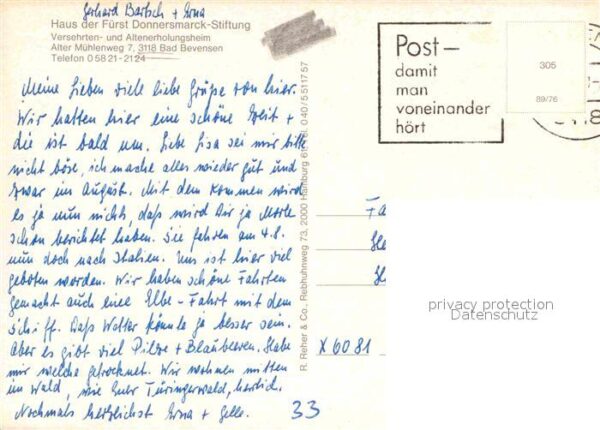 Gerhard Bartsch + Erna
Haus der Fürst Donnersmarck-Stiftung
Versehrten- und Altenerholungsheim
Alter Mühlenweg 7, 3118 Bad Bevensen
Telefon 0 58 21 - 21 24
Meine Lieben viele liebe Grüße von hier.
Wir hatten hier eine schöne Zeit +
die ist bald um. Liebe Lisa sei mir bitte
nicht böse, ich mache alles wieder gut und
zwar im August. Mit dem kommen wird
es ja nun nicht, daß wird Dir ja
schon berichtet haben. Sie fahren am 4.8.
nun doch nach Italien. Uns ist hier viel
geboten worden. Wir haben schöne Fahrten
gemacht auch eine Elbe-Fahrt mit dem
Schiff. Daß Wetter könnte ja besser sein.
Aber es gibt viel Pilze + Blaubeeren. Habe
mir welche getrocknet. Wir wohnen mitten
im Wald, wie Euer Türingerwald, herlich.
Nochmals herzlichst Erna +
33
R. Reher & Co., Rebhuhnweg 73, 2000 Hamburg 61, Tel. 040/5 51 17 57
Post-
damit
man
voneinander
hört
305
89/76
X 6081
privacy protection
Datenschutz